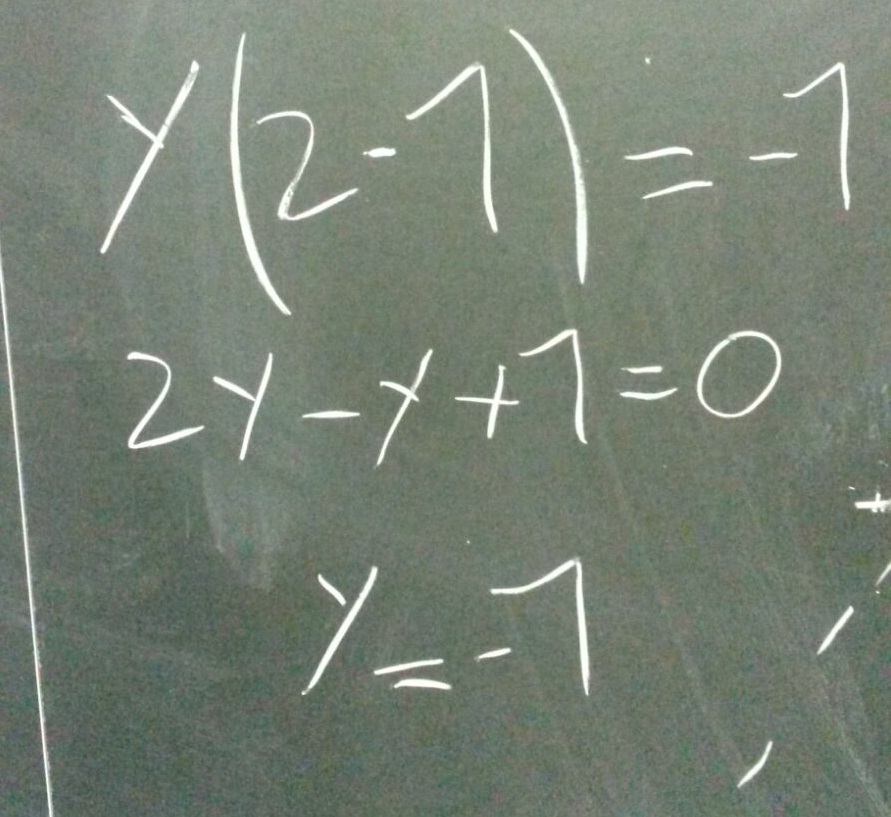 y(2-1)=-1
2y-y+1=0
y=-1